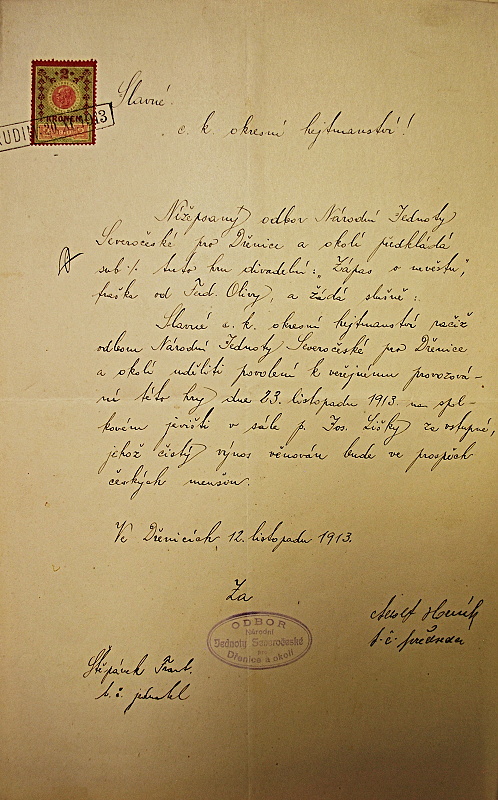 2
KORUNY
Slavné
c. k. okresní hejtmanství!
Nížepsaný odbor Národní Jednoty
Severočeské pro Dřenice a okolí předkládá
sub ·/. tuto hru divadelní: „Zápas o nevěstu",
fraška od Ferd. Olivy, a žádá slušně:
Slavné c. k. okresní hejtmanství račiž
odboru Národní Jednoty Severočeské pro Dřenice
a okolí uděliti povolení k veřejnému provozová-
ní této hry dne 23. listopadu 1913 na spol-
kovém jevišti v sále p. Jos. Lišky za vstupné,
jehož čistý výnos věnován bude ve prospěch
českých menšin.
Ve Dřenicích, 12. listopadu 1913.
Za
ODBOR
Národní
Jednoty Severočeské
pro
Dřenice a okolí
Adolf
t. č. předseda
Štěpánek Frant.
t. č. jednatel